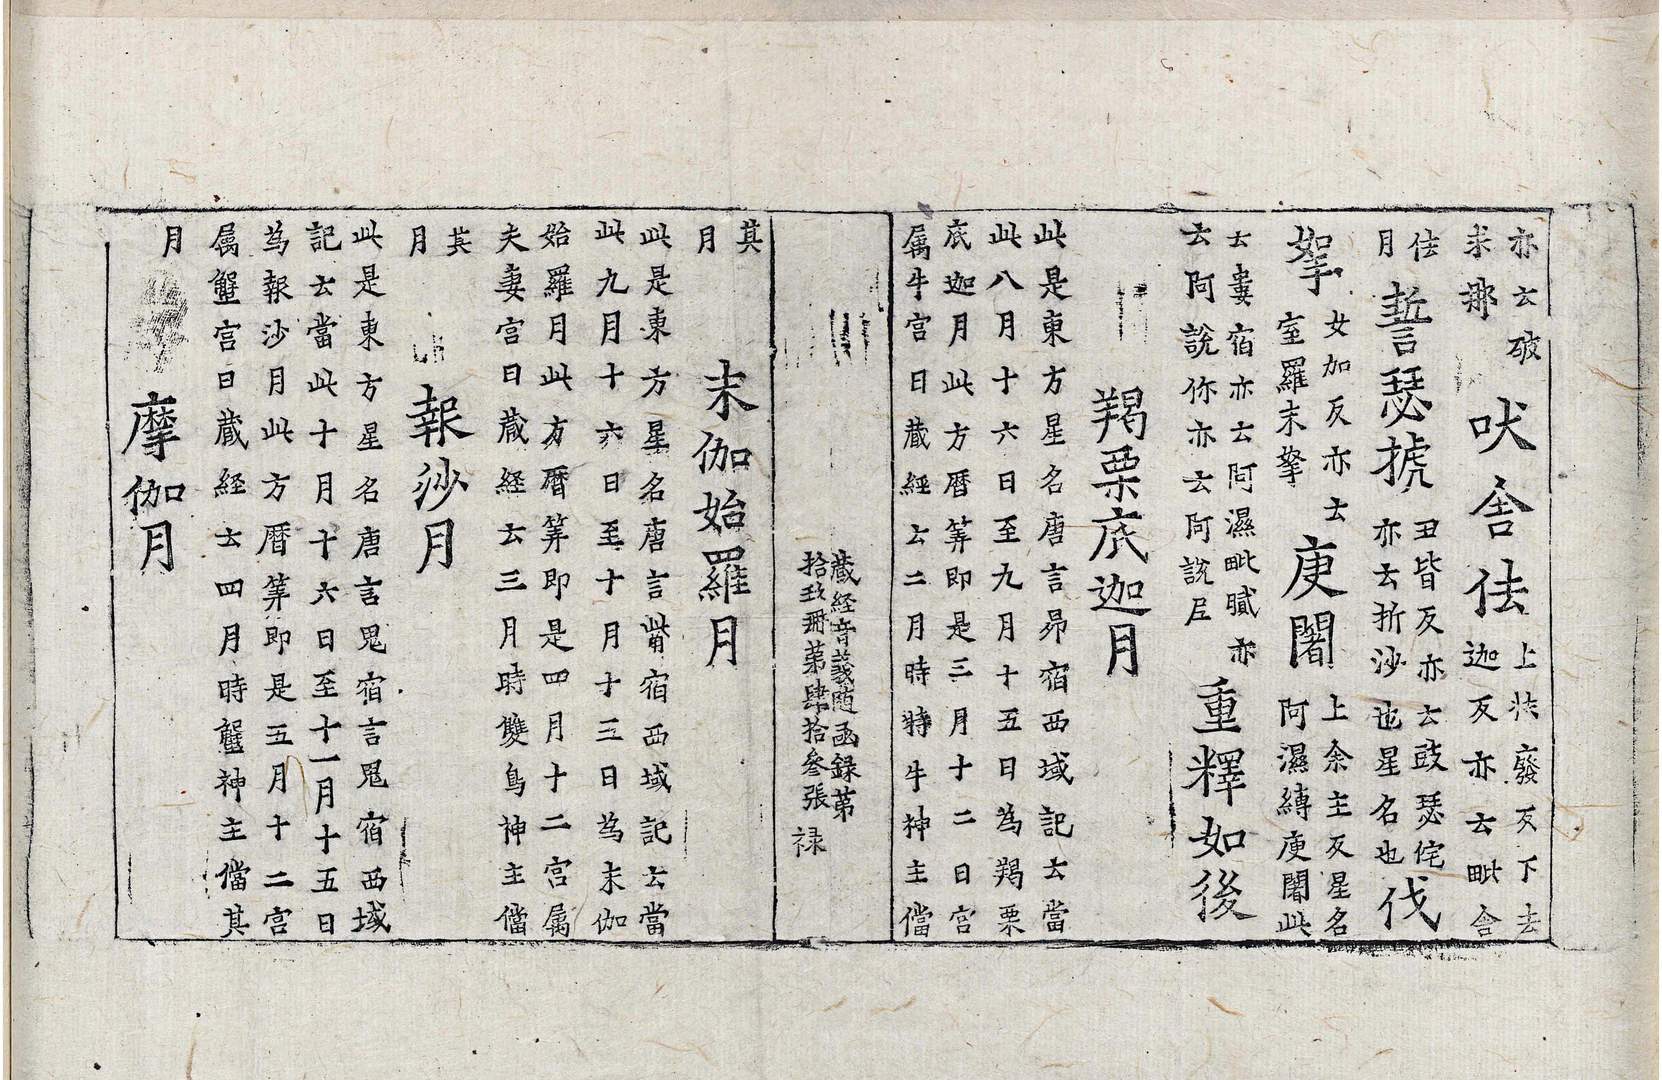 亦云破
求那
吠舍佉
上扶廢反下去
迦反亦云毗舍
佉
月
誓瑟搋
丑皆反亦云鼓瑟侘
亦云折沙也星名也
伐
拏
女加反亦云
室羅末拏
庾闍
上余主反星名
阿濕縛庾闍此
云婁宿亦云阿濕毗膩亦
云阿說你亦云阿說𡰱
重釋如後
羯栗底迦月
此是東方星名唐言昴宿西域記云當
此八月十六日至九月十五日為羯栗
底迦月此方曆筭即是三月十二日宮
属牛宮日藏經云二月時特牛神主當
藏経音義随函錄第
拾玖冊第肆拾叄張 禄
其
月
末伽始羅月
此是東方星名唐言觜宿西域記云當
此九月十六日至十月十三日為末伽
始羅月此方曆筭即是四月十二宮属
夫妻宮日藏経云三月時雙鳥神主當
其
月
報沙月
此是東方星名唐言鬼宿言鬼宿西域
記云當此十月十六日至十一月十五日
為報沙月此方曆筭即是五月十二宮
属蟹宮日藏経云四月時蟹神主當其
月
摩伽月